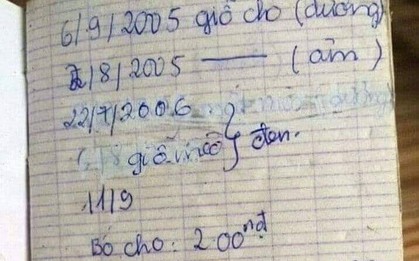 6/9/2005 giỗ cho (dương)
/8/2005 — (âm)
22/7/2006
giỗ } đen.
11/9
Bó cho: 200nđ